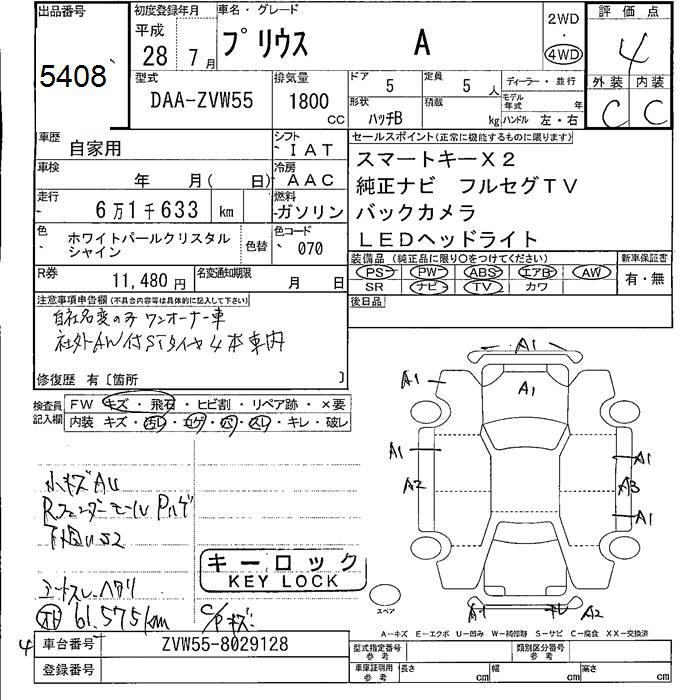 出品番号 初度登録年月 車名・グレード 2WD 評価点
5408 平成 28 7月 プリウス A ・ 4WD 4
型式 排気量 ドア 定員 ディーラー・並行 外装 内装
DAA-ZVW55 1800 CC 5 5人 モデル年式 年 C C
形状 ハッチB 積載 kg ハンドル 左・右
車歴 自家用 シフト IAT セールスポイント(正常に機能するものに限ります)
車検 年 月( 日) 冷房 AAC スマートキーX2
走行 6万1千633 km 燃料 ガソリン 純正ナビ フルセグTV
色 ホワイトパールクリスタル 色替 色コード 070 バックカメラ
シャイン LEDヘッドライト
R券 11,480円 名変通知期限 月 日 装備品 (純正品に限り○をつけてください) 新車保証書
PS PW ABS エアB AW 有・無
SR ナビ TV カワ
注意事項申告欄(不具合内容等は具体的に記入して下さい) 後日品
自社名変のみ ワンオーナー車
社外AW付STタイヤ4本車内
修復歴 有〔箇所 〕
検査員記入欄 FW キズ・飛石・ヒビ割・リペア跡・×要
内装 キズ・汚レ・コゲ・穴・スレ・キレ・破レ
A1
A1 A1
A1 A1
A2 A3
A1
小キズAU
RフェンダーモールPハゲ
下回りS2
キーロック
KEY LOCK
コートスレ・ヘタリ
61,575km C/Pキズ
スペア
A1 キレ A2
A-キズ E-エクボ U-凹み W-補修跡 S-サビ C-腐食 XX-交換済
4 車台番号 ZVW55-8029128 型式指定番号 参考 類別区分番号 参考
登録番号 車庫証明用 参考 長さ cm 幅 cm 高さ cm